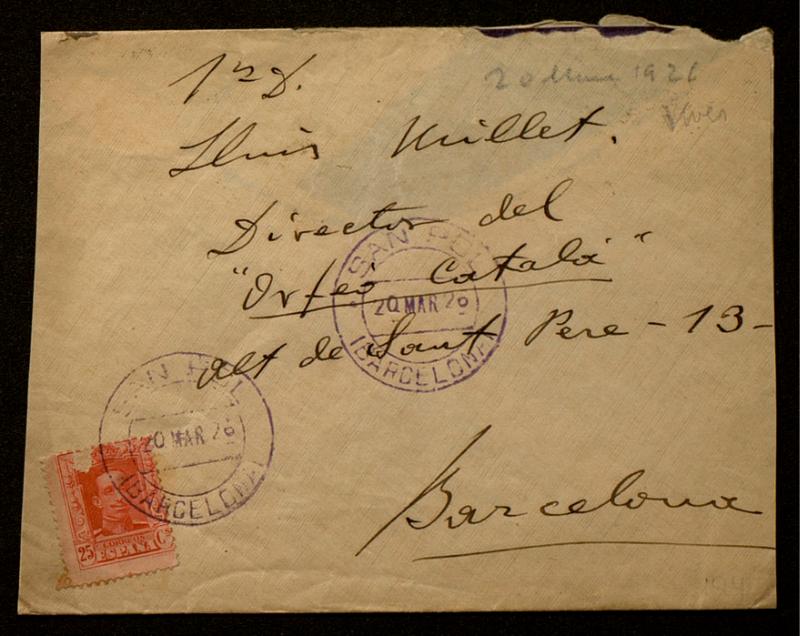 20 1926
Sr D.
Lluis Millet.
Director del
"Orfeó Català"
alt de Sant Pere - 13 -
Barcelona
SAN POL
20 MAR 26
(BARCELONA)
SAN POL
20 MAR 26
(BARCELONA)
CORREOS
25 ESPAÑA Cs